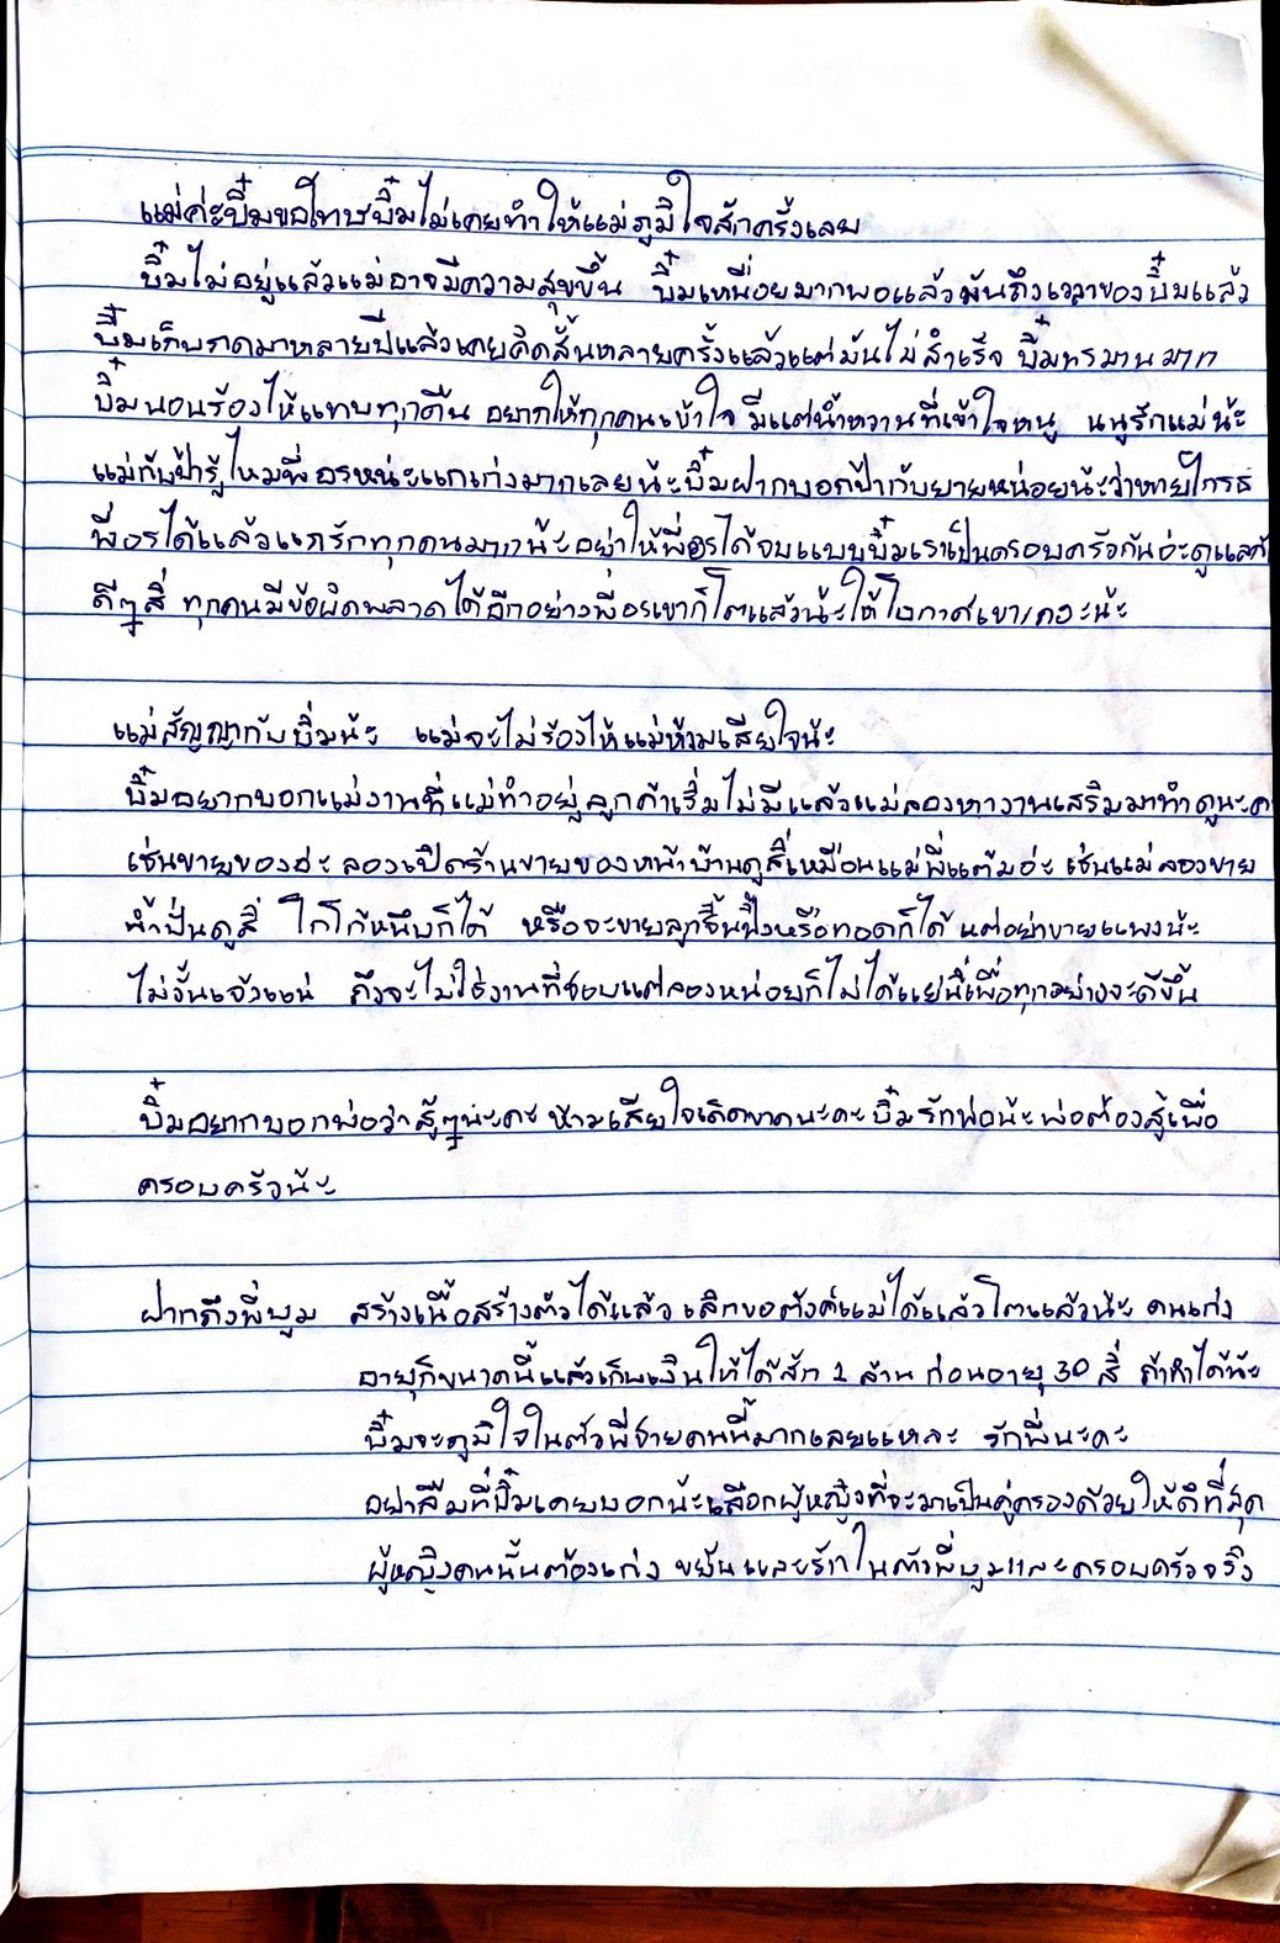 แม่ค่ะบิ๋มขอโทษบิ๋มไม่เคยทำให้แม่ภูมิใจสักครั้งเลย
บิ๋มไม่อยู่แล้วแม่อาจมีความสุขขึ้น บิ๋มเหนื่อยมากพอแล้วมันถึงเวลาของบิ๋มแล้ว
บิ๋มเก็บกดมาหลายปีแล้วเคยคิดสั้นหลายครั้งแล้วแต่มันไม่สำเร็จ บิ๋มทรมานมาก
บิ๋มนอนร้องไห้แทบทุกคืน อยากให้ทุกคนเข้าใจ มีแต่น้ำหวานที่เข้าใจหนู หนูรักแม่น้ะ
แม่กับป้ารู้ไหมพี่อรหน่ะแกเก่งมากเลยน้ะบิ๋มฝากบอกป้ากับยายหน่อยน้ะว่าหายโกรธ
พี่อรได้แล้วแกรักทุกคนมากน้ะอย่าให้พี่อรได้จบแบบบิ๋มเราเป็นครอบครัวกันอ่ะดูแลกัน
ดีๆสิ่ ทุกคนมีข้อผิดพลาดได้อีกอย่างพี่อรเขาก็โตแล้วน้ะให้โอกาศเขาเถอะน้ะ
แม่สัญญากับบิ๋มน้ะ แม่จะไม่ร้องไห้แม่ห้ามเสียใจน้ะ
บิ๋มอยากบอกแม่งานที่แม่ทำอยู่ลูกค้าเริ่มไม่มีแล้วแม่ลองหางานเสริมมาทำดูนะค
เช่นขายของอ่ะ ลองเปิดร้านขายของหน้าบ้านดูสิ่เหมือนแม่พี่แต้มอ่ะ เช่นแม่ลองขาย
น้ำปั่นดูสิ่ โกโก้หนึบก็ได้ หรือจะขายลูกชิ้นปิ้งหรือทอดก็ได้ แต่อย่าขายแพงน้ะ
ไม่งั้นเจ้งแน่ ถึงจะไม่ใช่งานที่ชอบแต่ลองหน่อยก็ไม่ได้แย่นี่เพื่อทุกอย่างจะดีขึ้น
บิ๋มอยากบอกพ่อว่าสู้ๆนะคะ ห้ามเสียใจเด็ดขาดนะคะ บิ๋มรักพ่อน้ะ พ่อต้องสู้เพื่อ
ครอบครัวน้ะ
ฝากถึงพี่ภูม สร้างเนื้อสร้างตัวได้แล้ว เลิกขอตังค์แม่ได้แล้วโตแล้วน้ะ คนเก่ง
อายุก็ขนาดนี้แล้วเก็บเงินให้ได้สัก 1 ล้าน ก่อนอายุ 30 สิ่ ถ้าทำได้น้ะ
บิ๋มจะภูมิใจในตัวพี่ชายคนนี้มากเลยแหละ รักพี่นะคะ
อย่าลืมที่บิ๋มเคยบอกน้ะเลือกผู้หญิงที่จะมาเป็นคู่ครองด้วยให้ดีที่สุด
ผู้หญิงคนนั้นต้องเก่ง ขยันและรักในตัวพี่ภูมและครอบครัวจริง